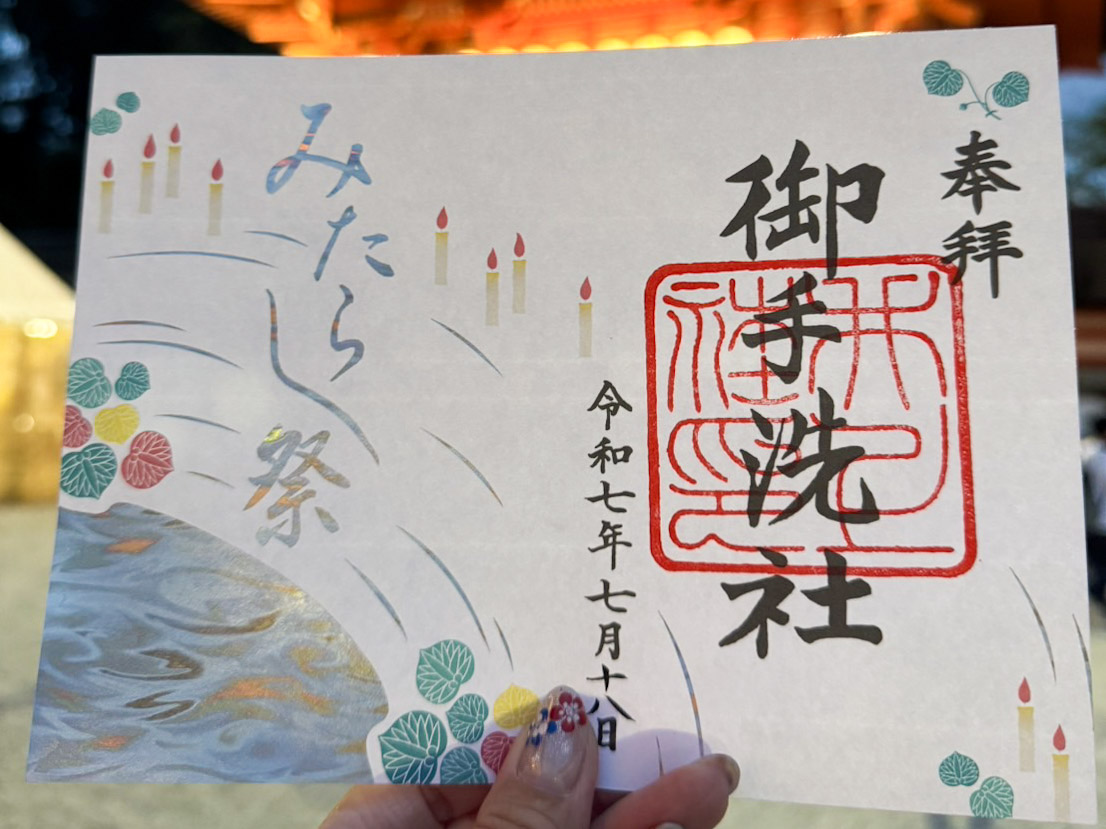 奉拝
御手洗社
令和七年七月十八日
みたらし祭